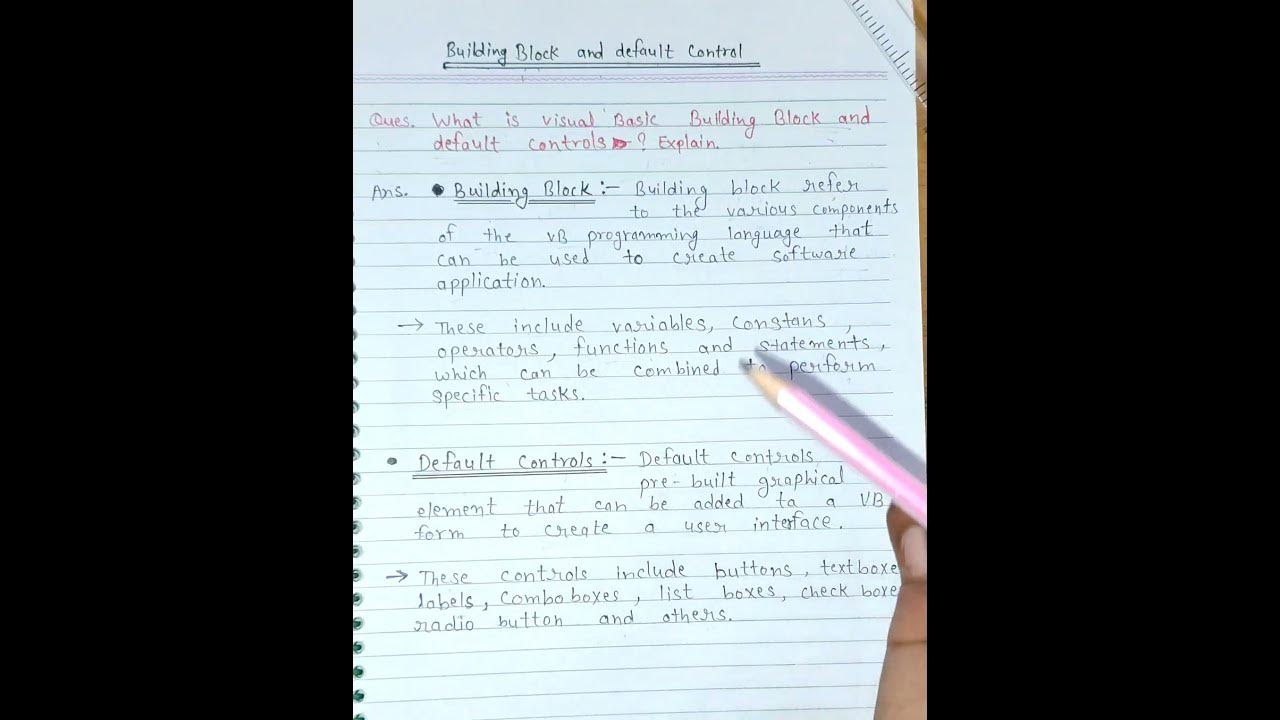 Building Block and default Control
Ques. What is visual Basic Building Block and
default controls ? Explain.
Ans. • Building Block :- Building block refer
to the various components
of the VB programming language that
can be used to create software
application.
→ These include variables, Constans,
operators, functions and statements,
which can be combined to perform
specific tasks.
• Default Controls :- Default controls
pre-built graphical
element that can be added ta a VB
form to create a user interface.
→ These controls include buttons, textboxe
labels, Comboboxes, list boxes, check boxe
radio button and others.